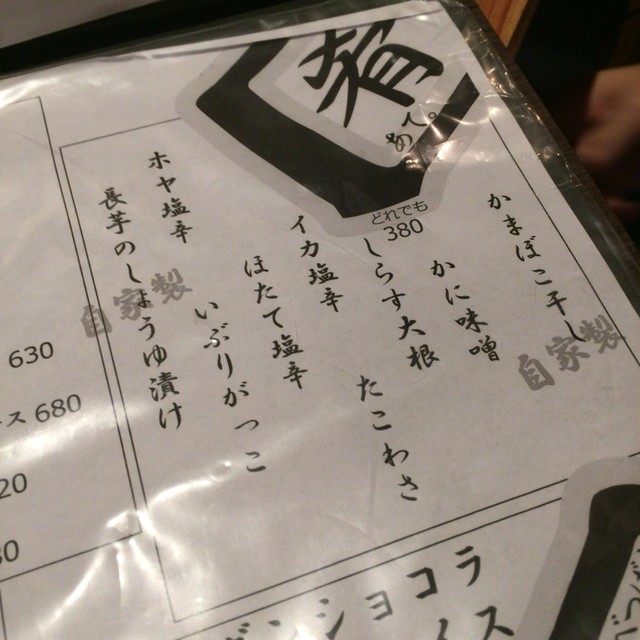 肴
どれでも
380
かまぼこ干し
自家製
かに味噌
しらす大根
たこわさ
イカ塩辛
ほたて塩辛
いぶりがっこ
ホヤ塩辛
長芋のしょうゆ漬け
自家製
630
ス 680
20
ラ
ショコ
ス